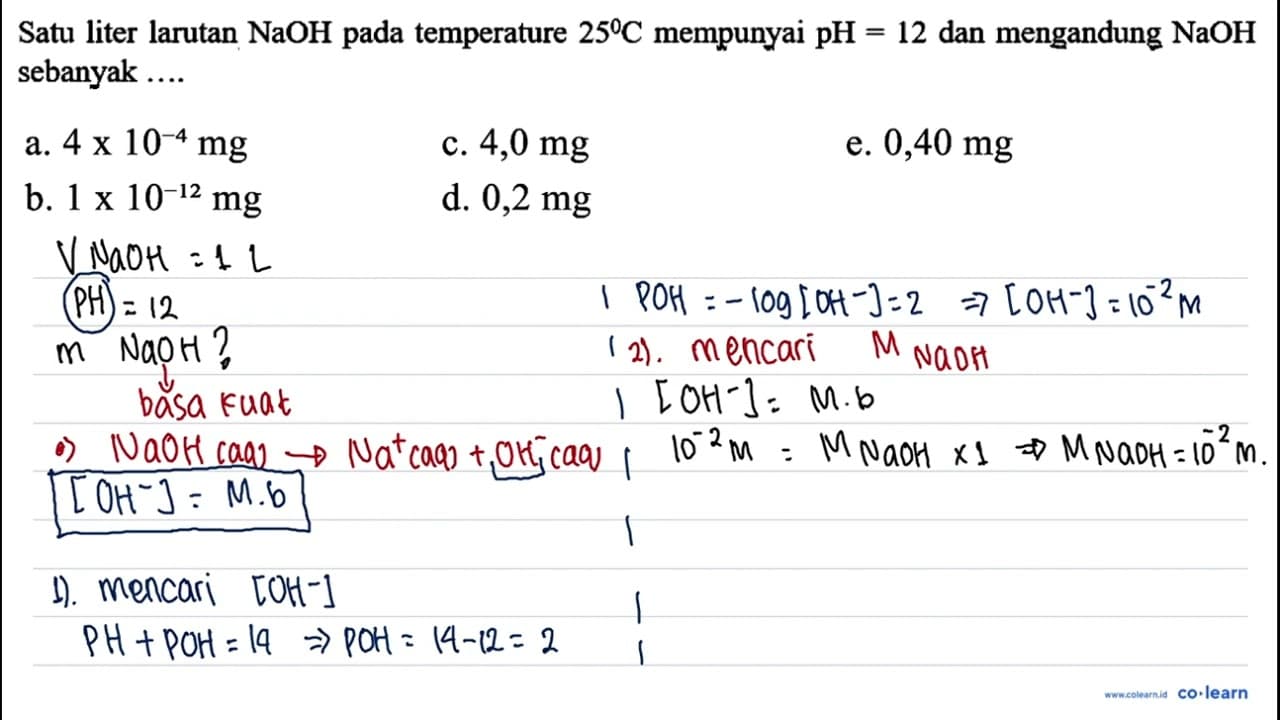 Satu liter larutan NaOH pada temperature 25⁰C mempunyai pH = 12 dan mengandung NaOH
sebanyak ....
a. 4 x 10⁻⁴ mg
c. 4,0 mg
e. 0,40 mg
b. 1 x 10⁻¹² mg
d. 0,2 mg
V NaOH = 1 L
PH = 12
m NaOH ?
basa kuat
NaOH (aq) → Na⁺(aq) + OH⁻(aq)
[OH⁻] = M.b
1). mencari [OH⁻]
PH + POH = 14 ⇒ POH = 14-12 = 2
POH = -log[OH⁻] = 2 ⇒ [OH⁻] = 10⁻² M
2). mencari M NaOH
[OH⁻] = M.b
10⁻² M = M NaOH x 1 ⇒ M NaOH = 10⁻² M.
www.colearn.id co·learn